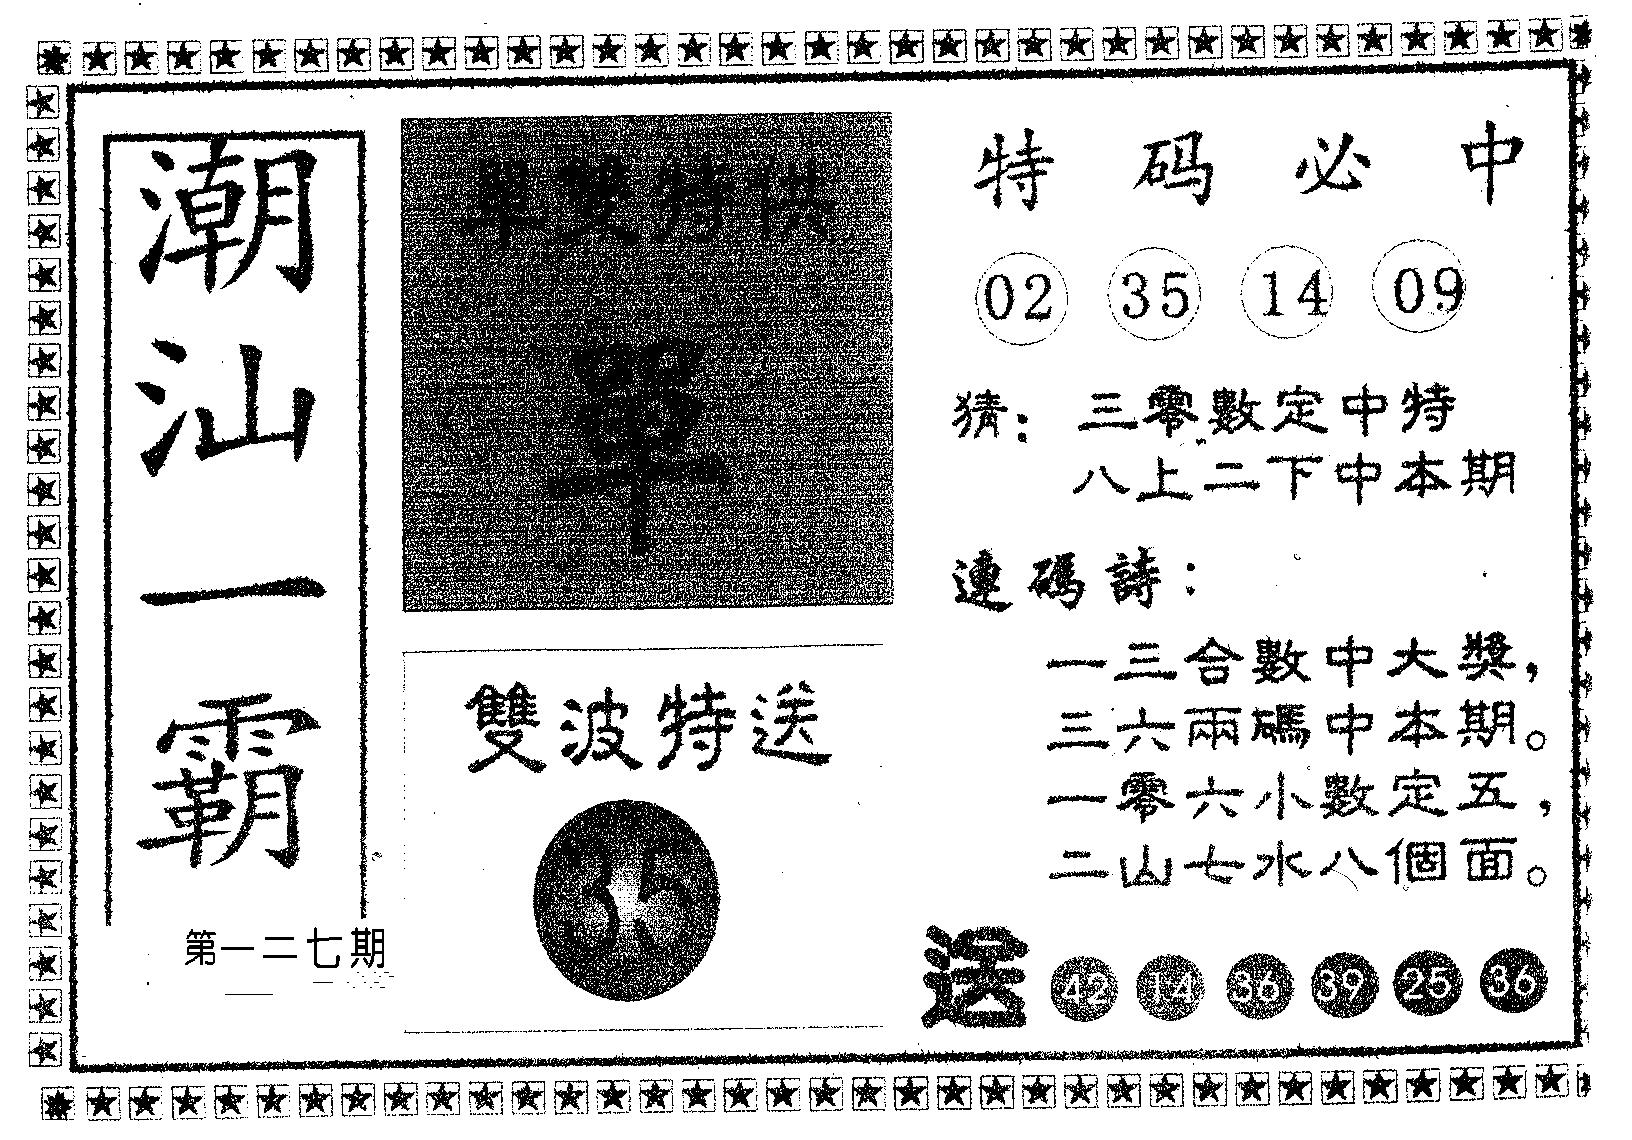 潮汕一霸
第一二七期
單雙特供
單
雙波特送
35
特码必中
02 35 14 09
猜：三零數定中特
八上二下中本期
連碼詩：
一三合數中大獎，
三六兩碼中本期。
一零六小數定五，
二山七水八個面。
送 42 14 36 39 25 36